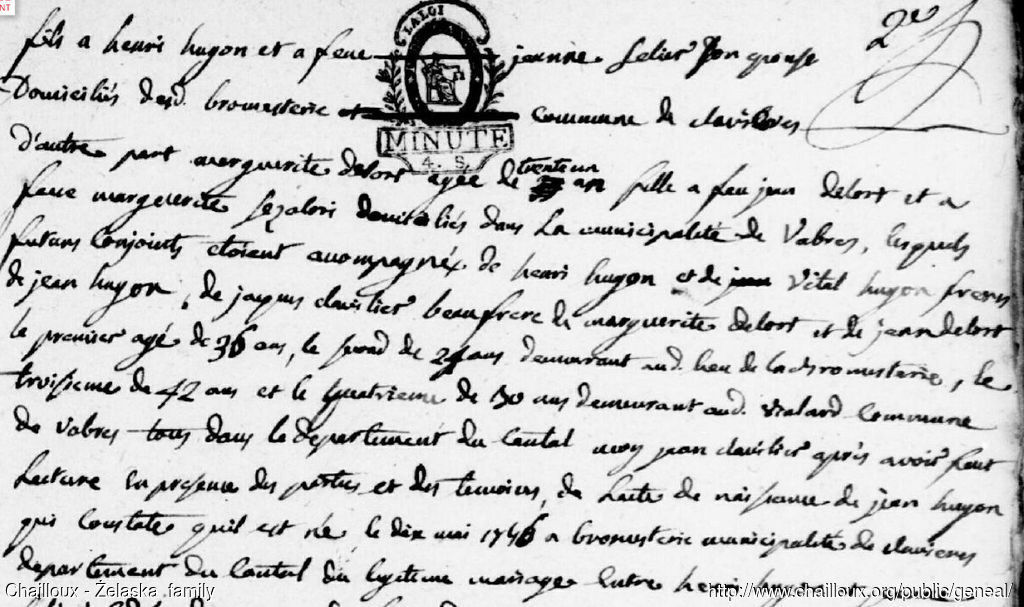 2e
fils a henri hugon et a feue jeanne Selier son epouse
LALOI
Domiciliés desd. bromesterie et commune de clavieres
MINUTE
4. S.
d'autre part marguerite delort agée de trente un an fille a feu jean delort et a
feue marguerite domiciliés dans la municipalité de Vabres, lesquels
futurs Conjoints etoient accompagnéz de henri hugon et de jean Vital hugon freres
de jean hugon, de jaques clavilier beaufrere de marguerite delort et de jean delort
le premier agé de 36 ans, le second de 24 ans demeurant aud. lieu de la bromesterie, le
troisieme de 42 ans et le quatrieme de 30 ans demeurant aud. vialard Commune
de vabres tous dans le departement du Cantal moy jean clavilier après avoir fait
Lecture En presence des parties et des temoins, de L'acte de naissance de jean hugon
qui Constate qu'il est né le dix mai 1756 a bromesterie municipalité de clavieres
departement du Cantal du legitime mariage Entre henri hugon et jeanne
Chailloux - Żelaska family
http://www.chailloux.org/public/geneal/